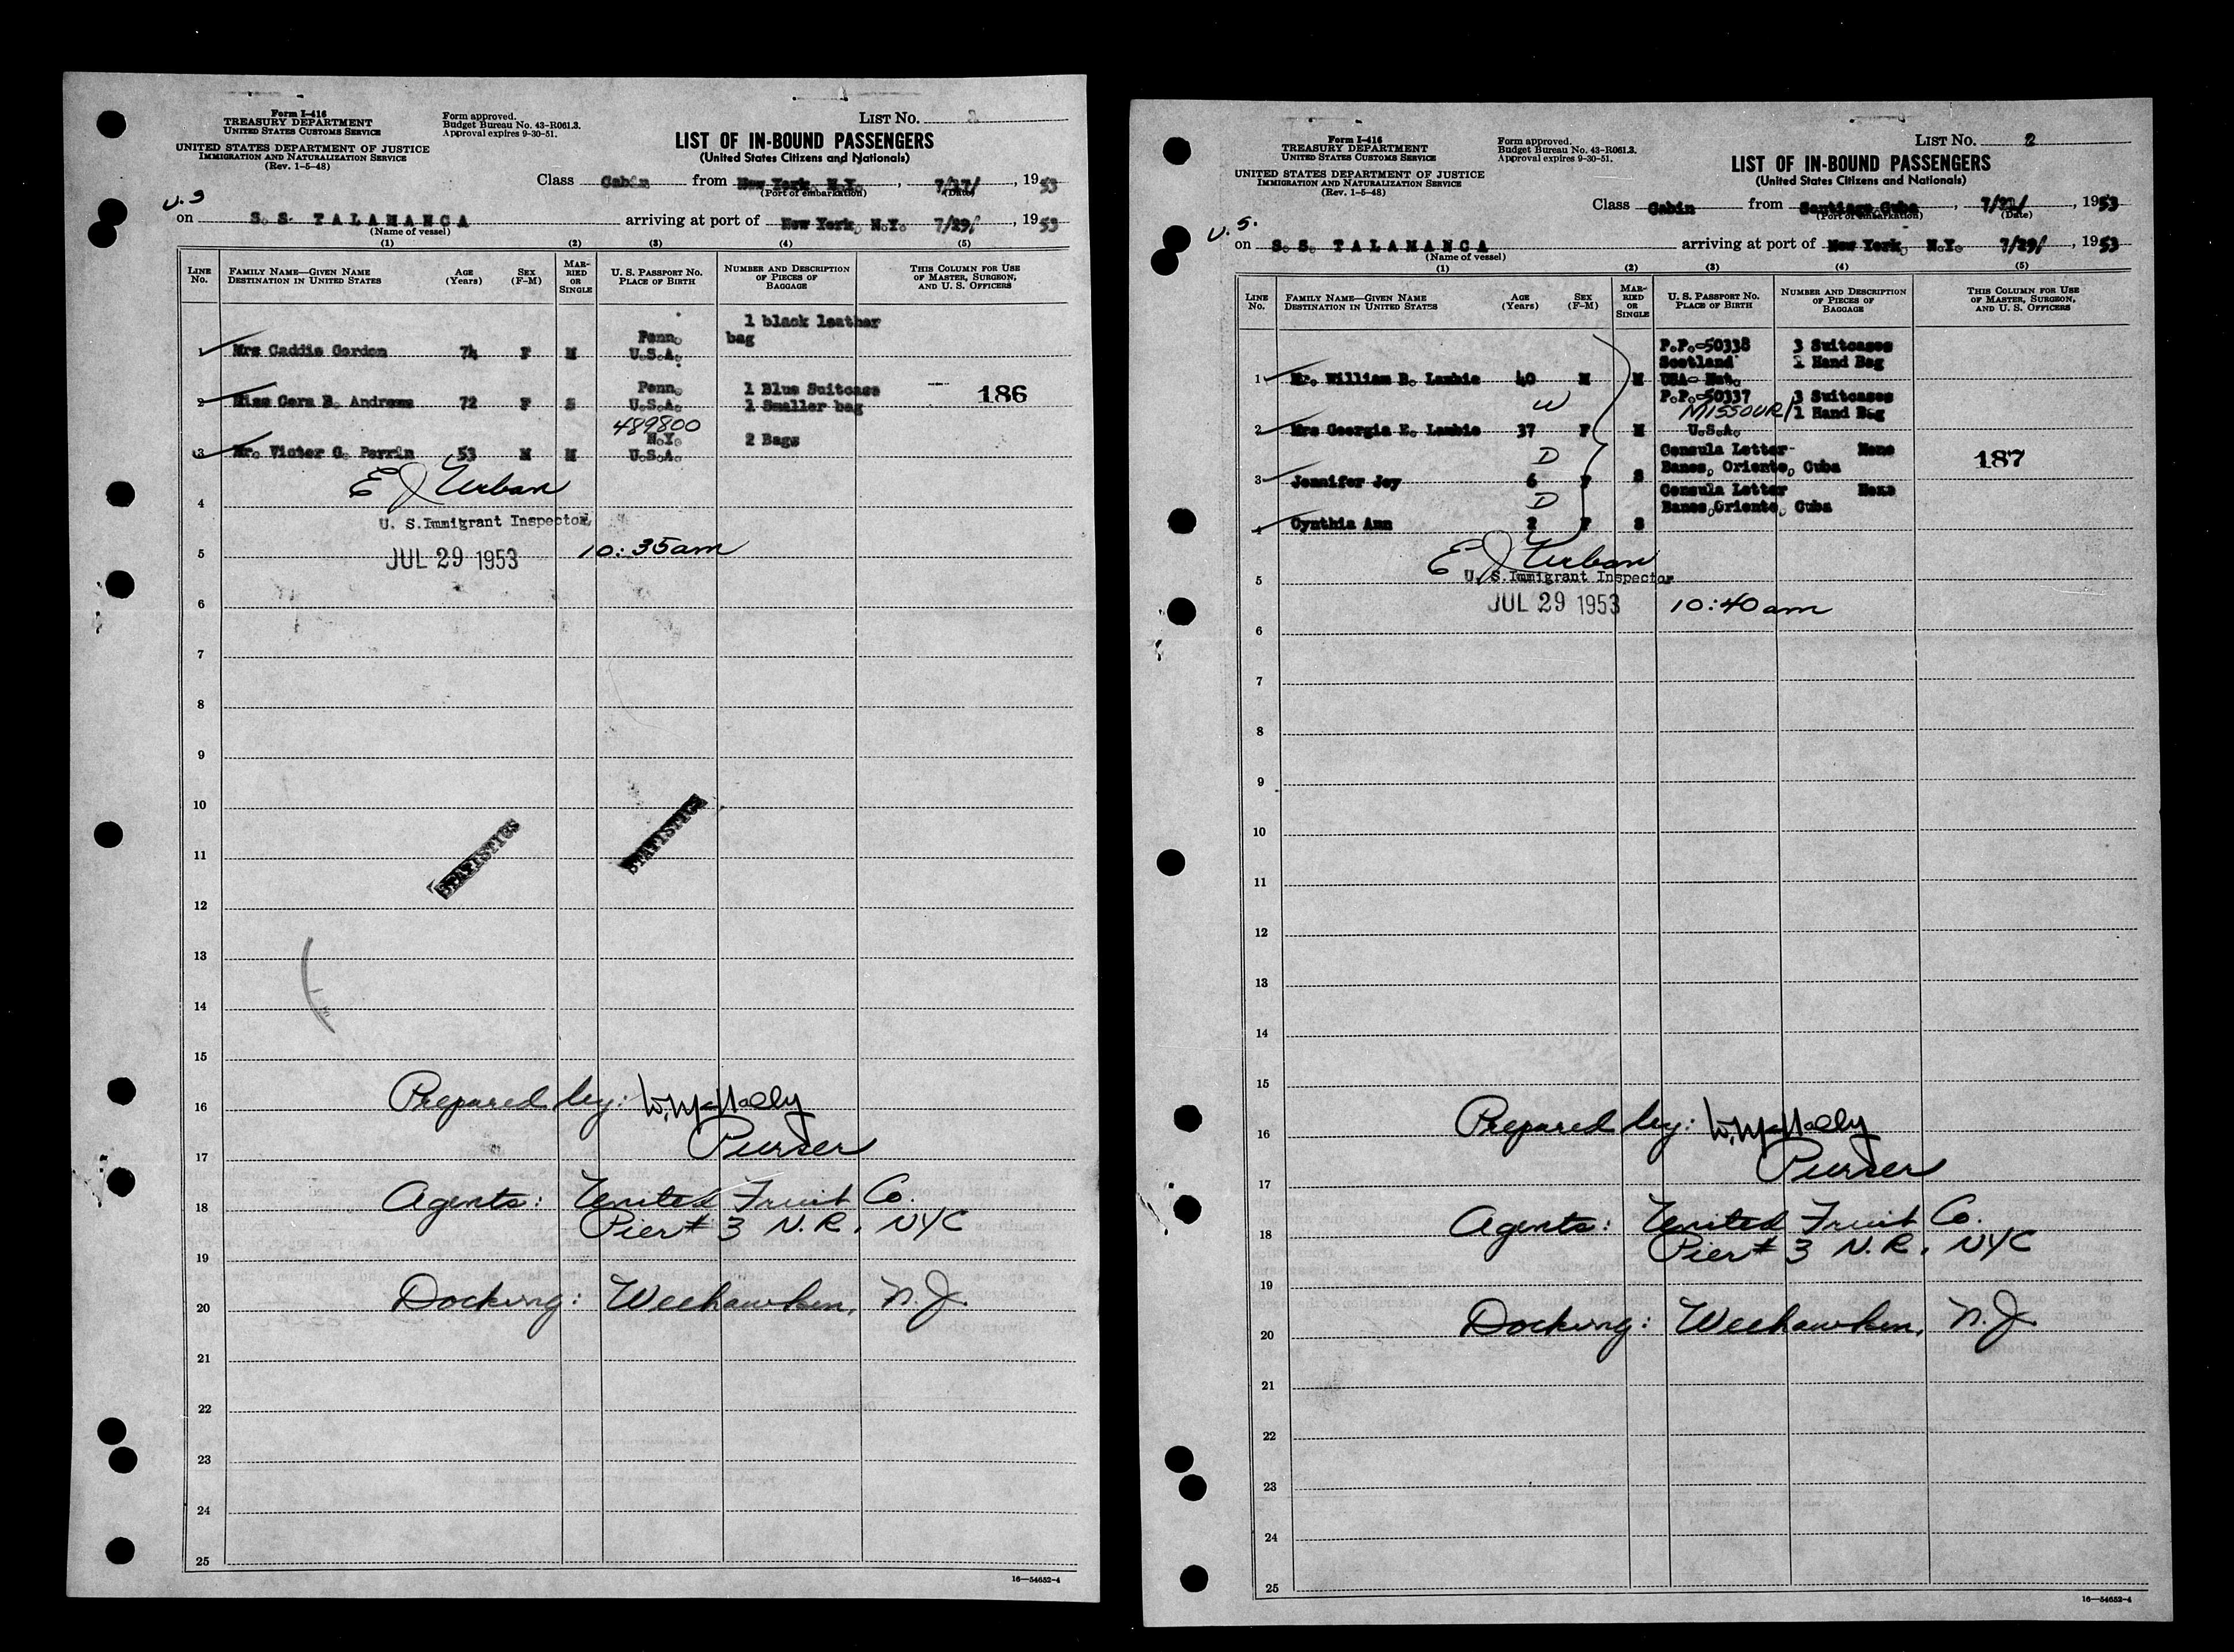 Form I-416
TREASURY DEPARTMENT
UNITED STATES CUSTOMS SERVICE
UNITED STATES DEPARTMENT OF JUSTICE
IMMIGRATION AND NATURALIZATION SERVICE
(Rev. 1-5-48)
Form approved.
Budget Bureau No. 43-R061.3.
Approval expires 9-30-51.
LIST No. 2
LIST OF IN-BOUND PASSENGERS
(United States Citizens and Nationals)
Class Cabin from New York, N.Y. , 7/17/ , 1953
(Port of embarkation) (Date)
U.S
on S. S. TALAMANCA arriving at port of New York, N.Y. 7/29/ , 1953
(Name of vessel)
(1) (2) (3) (4) (5)
LINE No. FAMILY NAME—GIVEN NAME DESTINATION IN UNITED STATES AGE (Years) SEX (F-M) MARRIED OR SINGLE U. S. PASSPORT No. PLACE OF BIRTH NUMBER AND DESCRIPTION OF PIECES OF BAGGAGE THIS COLUMN FOR USE OF MASTER, SURGEON, AND U. S. OFFICERS
1 black leather
Penn. bag
1 Mrs Caddie Gordon 74 F M U.S.A.
Penn. 1 Blue Suitcase
2 Miss Cora B. Andrews 72 F S U.S.A. 1 Smaller bag 186
489800
N.Y. 2 Bags
3 Mr. Victor G. Perrin 53 M M U.S.A.
E J Urban
4
U. S. Immigrant Inspector
5 JUL 29 1953 10:35am
6
7
8
9
10
STATISTICS STATISTICS
11
12
13
14
15
16 Prepared by: W. McNally
Purser
17
18 Agents: United Fruit Co.
Pier # 3 N.R. NYC
19
20 Docking: Weehawken, N.J.
21
22
23
24
25
16—54652-4
Form I-416
TREASURY DEPARTMENT
UNITED STATES CUSTOMS SERVICE
UNITED STATES DEPARTMENT OF JUSTICE
IMMIGRATION AND NATURALIZATION SERVICE
(Rev. 1-5-48)
Form approved.
Budget Bureau No. 43-R061.3.
Approval expires 9-30-51.
LIST No. 2
LIST OF IN-BOUND PASSENGERS
(United States Citizens and Nationals)
Class Cabin from Santiago Cuba , 7/22/ , 1953
(Port of embarkation) (Date)
U.S.
on S. S. TALAMANCA arriving at port of New York, N.Y. 7/29/ , 1953
(Name of vessel)
(1) (2) (3) (4) (5)
LINE No. FAMILY NAME—GIVEN NAME DESTINATION IN UNITED STATES AGE (Years) SEX (F-M) MARRIED OR SINGLE U. S. PASSPORT No. PLACE OF BIRTH NUMBER AND DESCRIPTION OF PIECES OF BAGGAGE THIS COLUMN FOR USE OF MASTER, SURGEON, AND U. S. OFFICERS
P.P.-50338 3 Suitcases
Scotland 1 Hand Bag
1 Mr. William B. Lambie 40 M M USA- Nat.
P.P.-50337 3 Suitcases
W MISSOURI 1 Hand Bag
2 Mrs Georgia E. Lambie 37 F M U.S.A.
D Consula Letter- None
Banes, Oriente, Cuba 187
3 Jennifer Joy 6 F S
D Consula Letter None
Banes, Oriente, Cuba
4 Cynthia Ann 2 F S
E J Urban
5 U. S. Immigrant Inspector
JUL 29 1953 10:40am
6
7
8
9
10
11
12
13
14
15
16 Prepared by: W. McNally
Purser
17
18 Agents: United Fruit Co.
Pier # 3 N.R. NYC
19
20 Docking: Weehawken, N.J.
21
22
23
24
25
16—54652-4